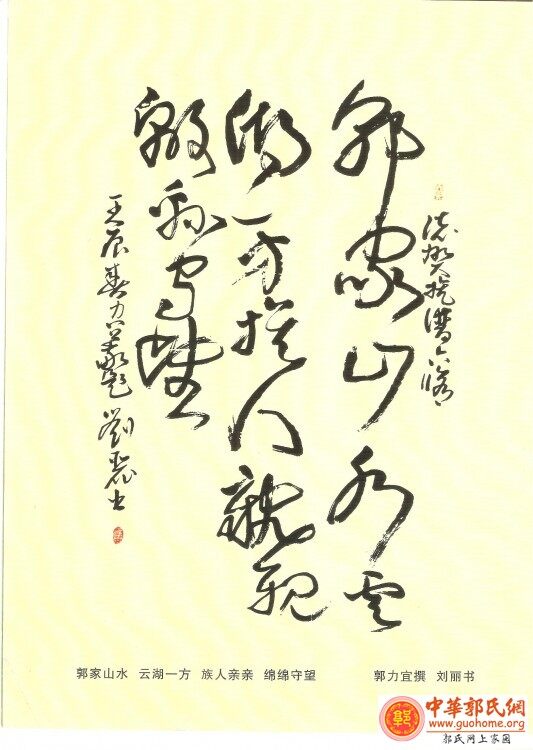 郭家山水雲
湖一方族人親親
綿綿守望
壬辰春力宜敬題 劉麗书
郭家山水 云湖一方 族人亲亲 绵绵守望 郭力宜撰 刘丽书
中華郭氏網
www.guohome.org
郭氏网上家园